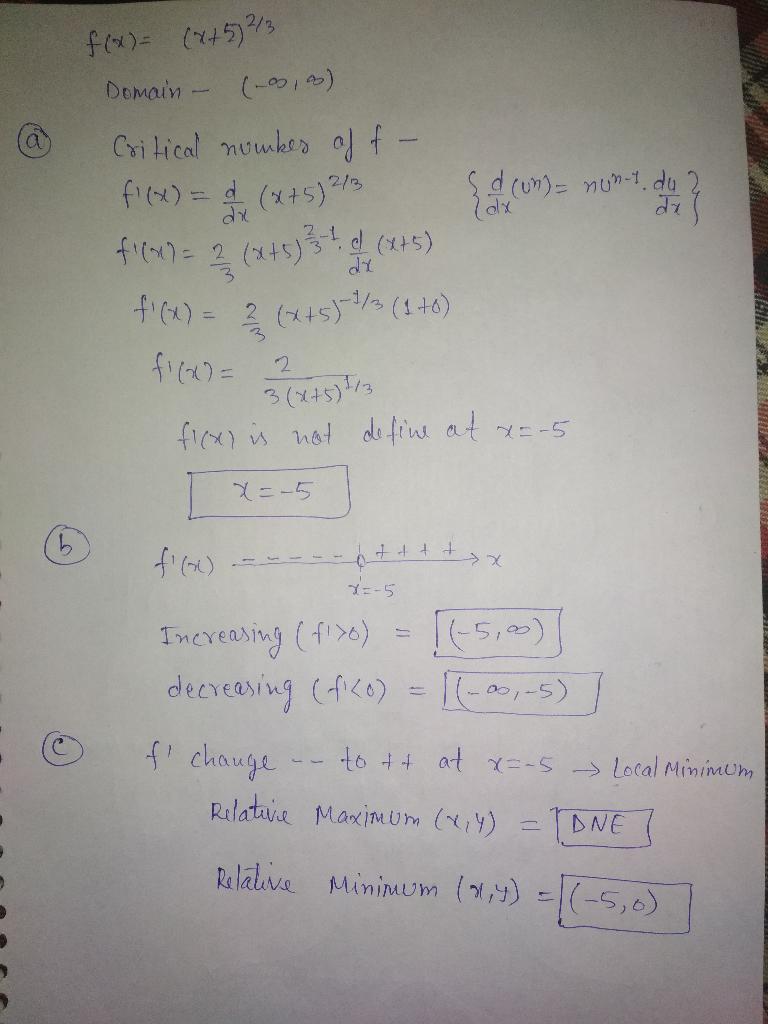 f(x) = (x+5)^2/3
Domain – (-∞, ∞)
(a) Critical number of f –
f'(x) = d/dx (x+5)^2/3 { d/dx (u^n) = nu^n-1 . du/dx }
f'(x) = 2/3 (x+5)^2/3-1 . d/dx (x+5)
f'(x) = 2/3 (x+5)^-1/3 (1+0)
f'(x) = 2/3(x+5)^1/3
f'(x) is not define at x=-5
x = -5
(b) f'(x) - - - - - + + + + x
x=-5
Increasing (f'>0) = (-5, ∞)
decreasing (f'<0) = (-∞, -5)
(c) f' change -- to ++ at x=-5 → Local Minimum
Relative Maximum (x, y) = DNE
Relative Minimum (x, y) = (-5, 0)